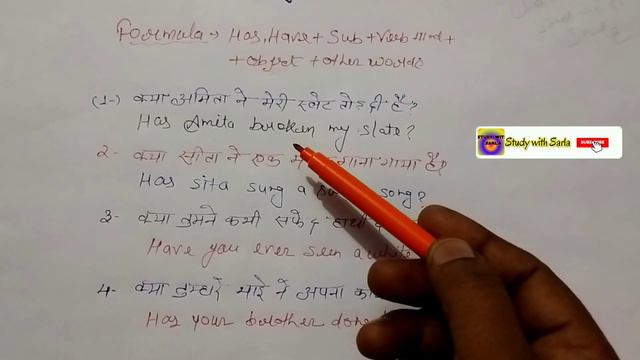 Formula → Has, Have + Sub + Verb IIIrd +
+ object + other words
(1-) क्या अमिता ने मेरी स्लेट तोड़ दी है?
Has Amita broken my slate?
2- क्या सीता ने एक गाना गाया है?
Has sita sung a song?
3- क्या तुमने कभी सफेद हाथी
Have you ever seen a white
4- क्या तुम्हारे भाई ने अपना
Has your brother done
STUDY WITH SARLA
Study with Sarla
SUBSCRIBE